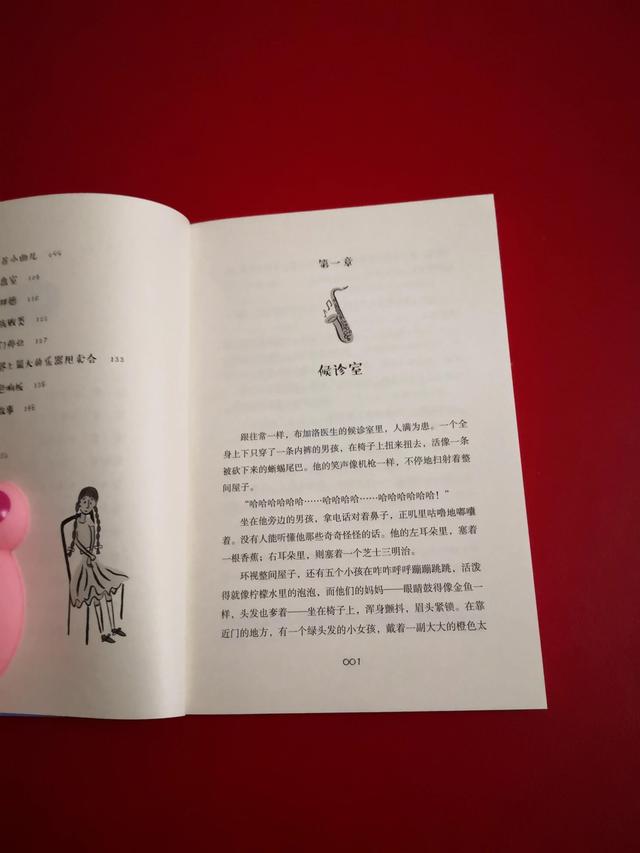 小曲儿 099
盒室 104
116
类 125
127
界上最大的乐器拍卖会 133
响板 138
故事 166
第一章
候诊室
跟往常一样，布加洛医生的候诊室里，人满为患。一个全
身上下只穿了一条内裤的男孩，在椅子上扭来扭去，活像一条
被砍下来的蜥蜴尾巴。他的笑声像机枪一样，不停地扫射着整
间屋子。
“哈哈哈哈哈哈……哈哈哈哈……哈哈哈哈哈哈！”
坐在他旁边的男孩，拿电话对着鼻子，正叽里咕噜地嘟囔
着。没有人能听懂他那些奇奇怪怪的话。他的左耳朵里，塞着
一根香蕉；右耳朵里，则塞着一个芝士三明治。
环视整间屋子，还有五个小孩在咋咋呼呼蹦蹦跳跳，活泼
得就像柠檬水里的泡泡，而他们的妈妈——眼睛鼓得像金鱼一
样，头发也奓着——坐在椅子上，浑身颤抖，眉头紧锁。在靠
近门的地方，有一个绿头发的小女孩，戴着一副大大的橙色太
001